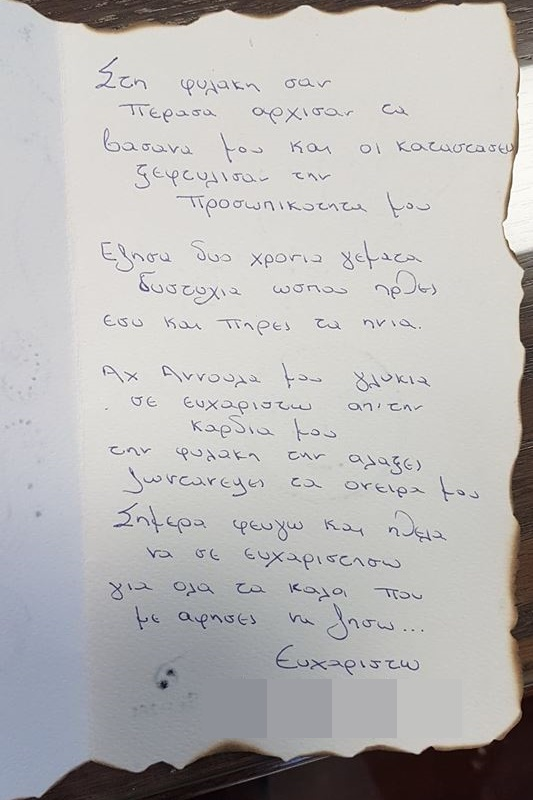 Στη φυλακη σαν
περασα αρχισαν τα
βασανα μου και οι καταστασεις
ξεφτυλισαν την
προσωπικοτητα μου
Εζησα δυο χρονια γεματα
δυστυχια ωσπου ηρθες
εσυ και πηρες τα ηνια.
Αχ Αννουλα μου γλυκια
σε ευχαριστω απ'την
καρδια μου
την φυλακη την αλαξες
ζωντανεψες τα ονειρα μου
Σημερα φευγω και ηθελα
να σε ευχαριστησω
για ολα τα καλα που
με αφησες να ζησω...
Ευχαριστω